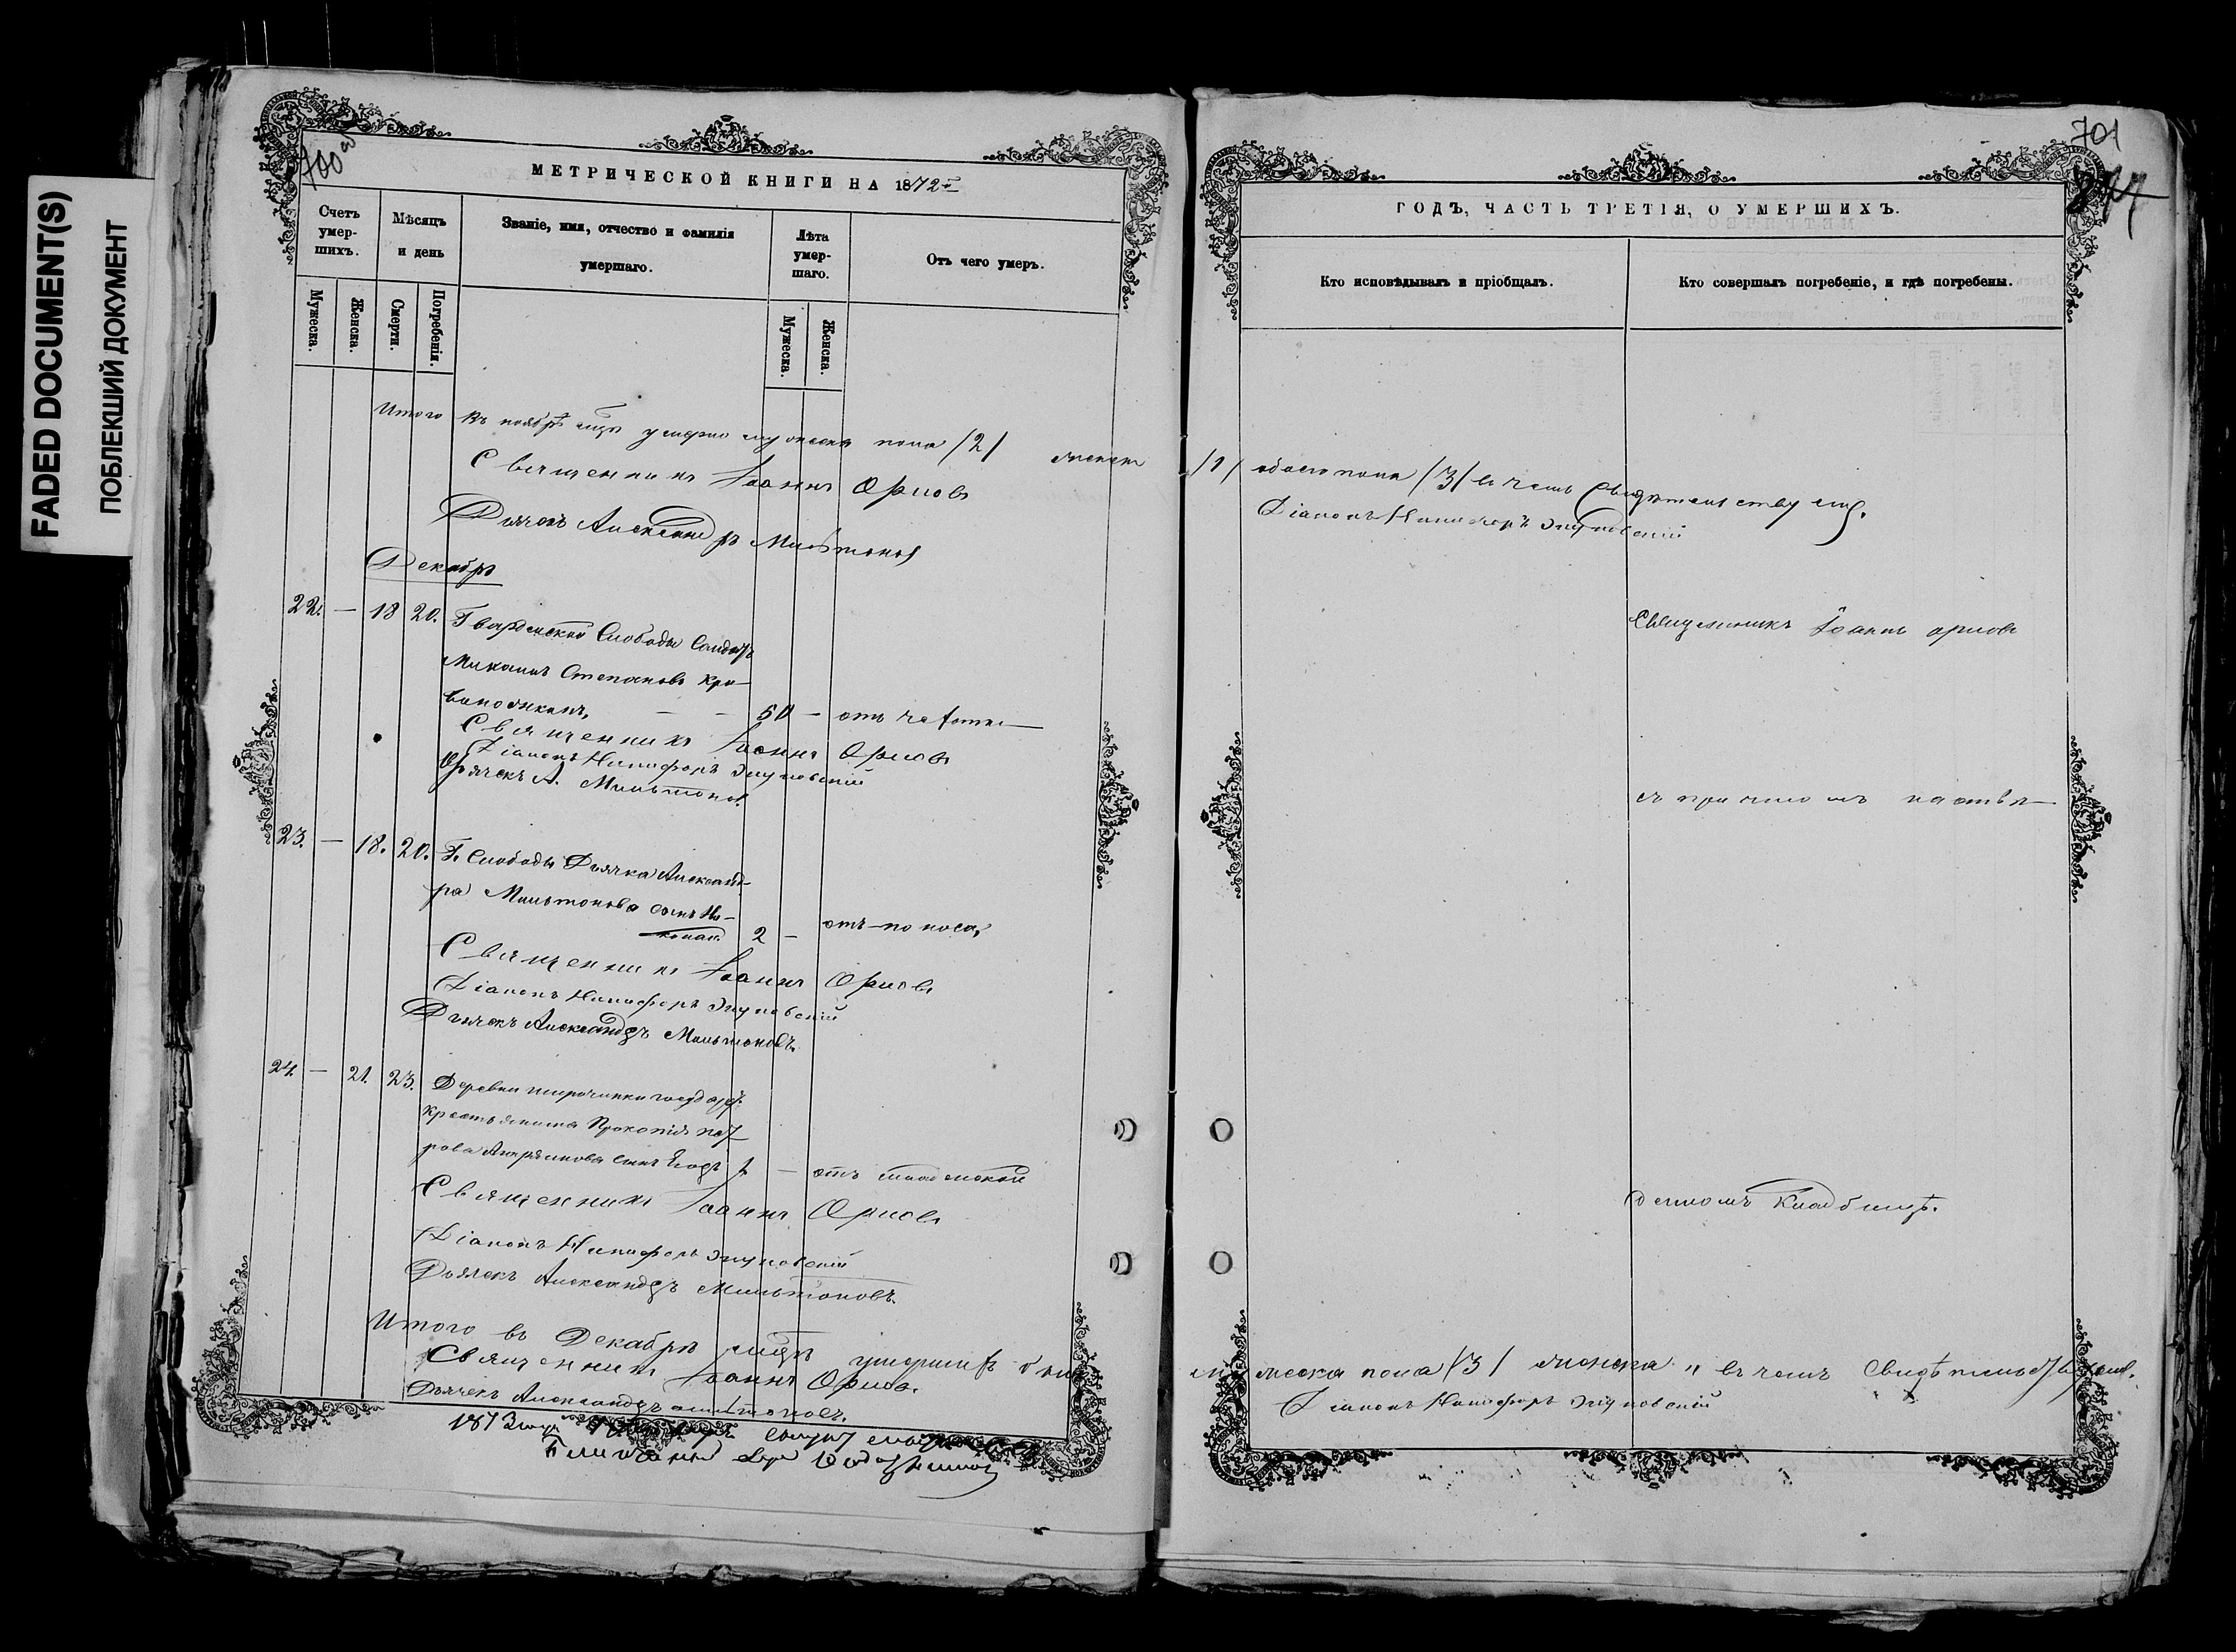 FADED DOCUMENT(S)
ПОБЛЕКШИЙ ДОКУМЕНТ
700 об
МЕТРИЧЕСКОЙ КНИГИ НА 1872й
Счетъ умер-шихъ.
Мѣсяцъ и день
Званіе, имя, отчество и фамилія умершаго.
Лѣта умер-шаго.
Отъ чего умеръ.
Мужеска.
Женска.
Смерти.
Погребенія.
Мужеска.
Женска.
Итого въ ноябрѣ мцѣ умерло мужеска пола /2/ женск
Священникъ Іоаннъ Орловъ
Дьячекъ Александръ Мильтоновъ
Декабрь
22. — 18 20. Гвардейской Слободы Солдатъ
Михаилъ Степановъ Кри-
50 — отъ чахотки
Священникъ Іоаннъ Орловъ
Діаконъ Никифоръ
Дьячекъ А. Мильтоновъ
23. — 18. 20. Г. Слободы Дьячка Александ-
ра Мильтонова сынъ Ни-
колай 2 — отъ поноса,
Священникъ Іоаннъ Орловъ
Діаконъ Никифоръ
Дьячекъ Александръ Мильтоновъ.
24. — 21. 23. Деревни государ.
крестьянина Прокопія Пет
рова сынъ 1 — отъ младенской
Священникъ Іоаннъ Орловъ
Діаконъ Никифоръ
Дьячекъ Александръ Мильтоновъ.
Итого въ Декабрѣ мцѣ умершихъ было
Священникъ Іоаннъ Орловъ.
Дьячекъ Александръ Мильтоновъ.
1873 года
701
ГОДЪ, ЧАСТЬ ТРЕТІЯ, О УМЕРШИХЪ.
Кто исповѣдывалъ и пріобщалъ.
Кто совершалъ погребеніе, и гдѣ погребены.
/1/ обоего пола /3/ въ чемъ свидѣтельствуемъ.
Діаконъ Никифоръ
Священникъ Іоаннъ Орловъ
съ причтомъ на отве-
денномъ кладбищѣ.
мужеска пола /3/ женска " въ чемъ свидѣтельствуемъ.
Діаконъ Никифоръ